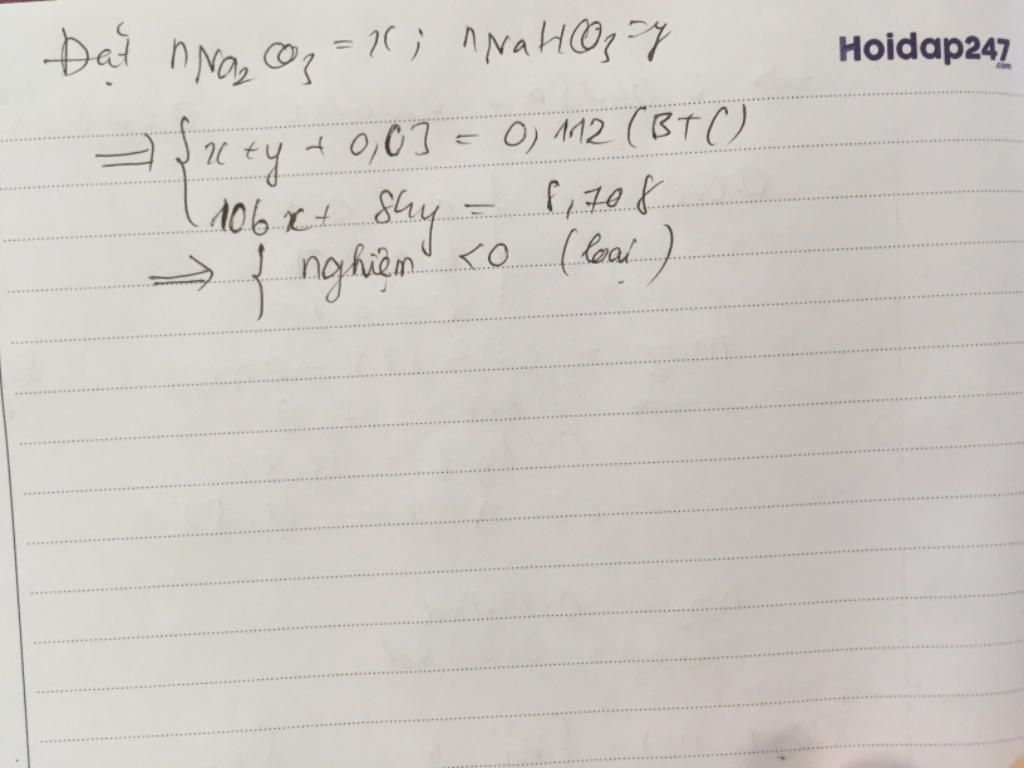 Đặt nNa₂CO₃ = x; nNaHCO₃ = y
Hoidap247
.com
⇒ { x + y + 0,03 = 0,112 (BTC)
106x + 84y = 8,708
⇒ { nghiệm < 0 (loại)